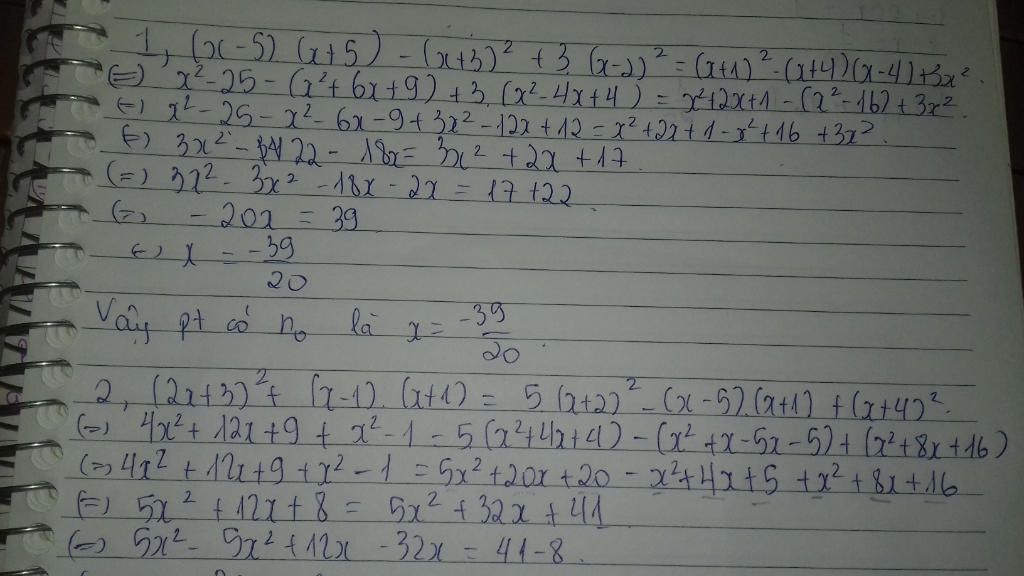 1, (x-5) (x+5) - (x+3)² + 3 (x-2)² = (x+1)² - (x+4)(x-4)+3x².
(=) x² - 25 - (x² + 6x + 9) + 3. (x² - 4x + 4) = x²+2x+1 - (x² - 16) + 3x².
(=) x² - 25 - x² - 6x - 9 + 3x² - 12x + 12 = x² + 2x + 1 - x² + 16 + 3x².
(=) 3x² - 22 - 18x = 3x² + 2x + 17.
(=) 3x² - 3x² - 18x - 2x = 17 + 22.
(=) - 20x = 39
(=) x = -39/20
Vậy pt có no là x = -39/20.
2, (2x+3)² + (x-1).(x+1) = 5(x+2)² - (x-5).(x+1) + (x+4)².
(=) 4x² + 12x + 9 + x² - 1 = 5(x²+4x+4) - (x² + x - 5x - 5) + (x² + 8x + 16)
(=) 4x² + 12x + 9 + x² - 1 = 5x² + 20x + 20 - x² + 4x + 5 + x² + 8x + 16
(=) 5x² + 12x + 8 = 5x² + 32x + 41
(=) 5x² - 5x² + 12x - 32x = 41 - 8.